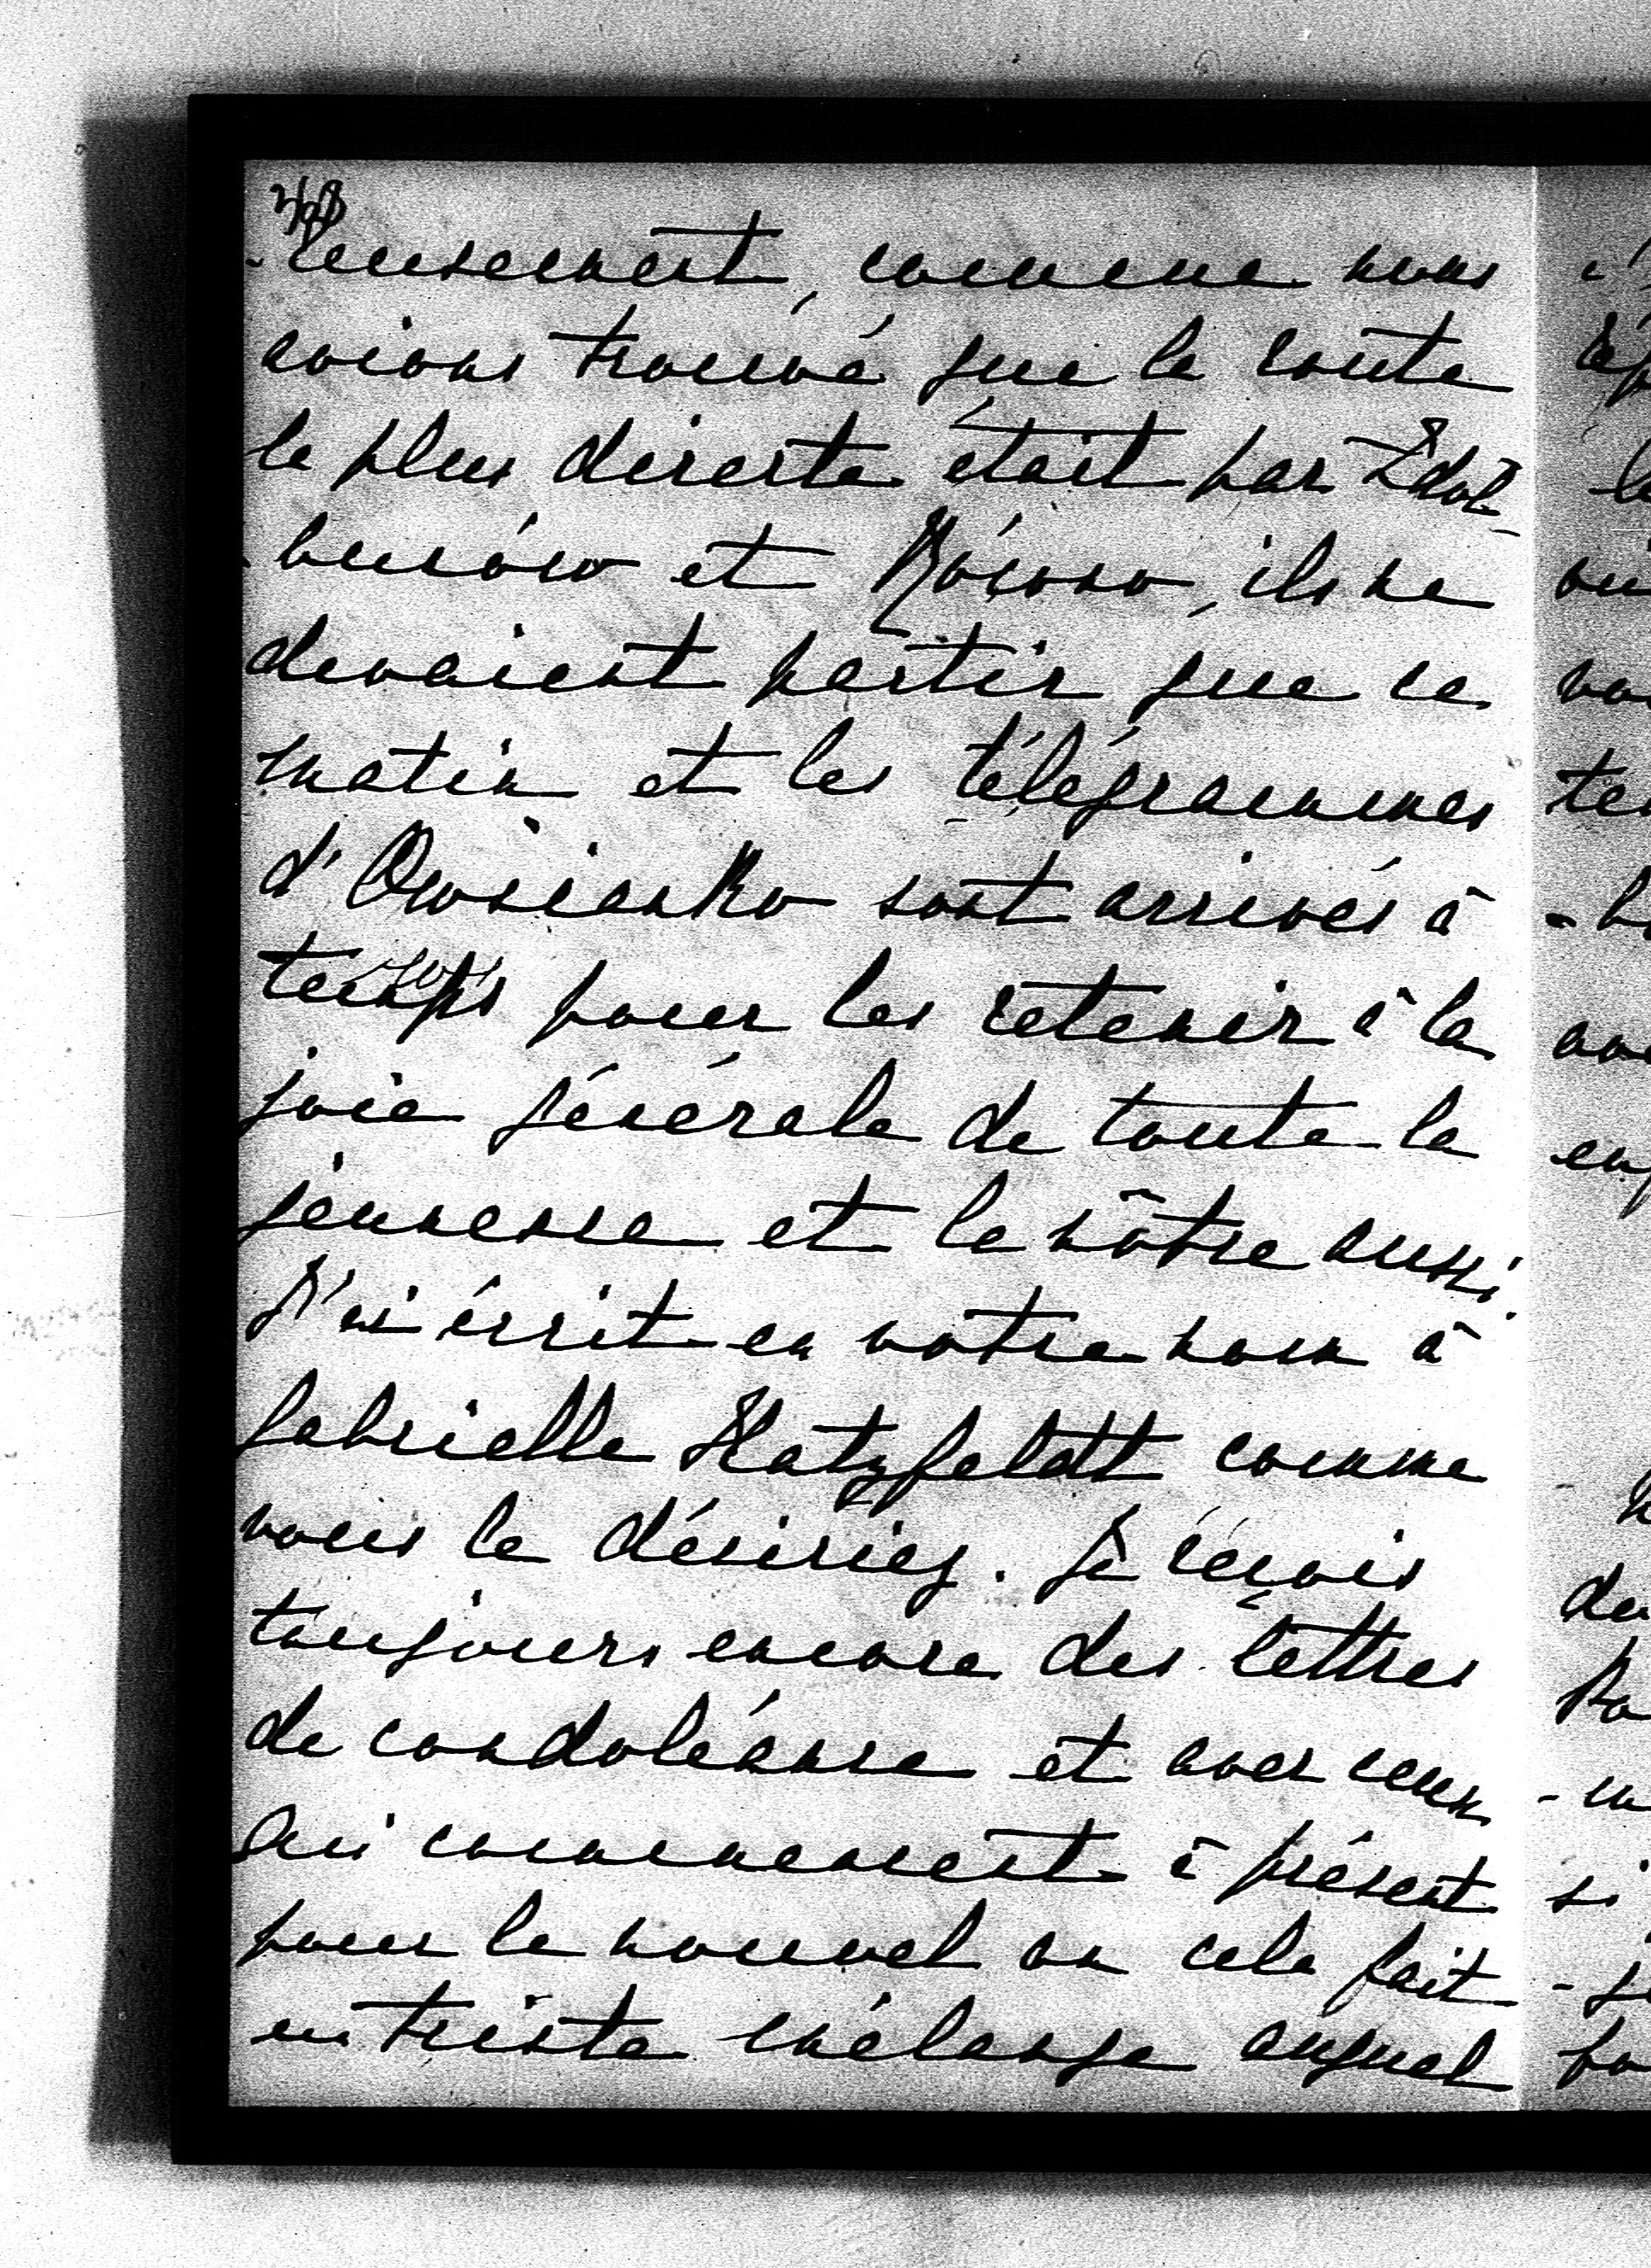 -reusement, comme nous
avions trouvé que la route
la plus directe était par Zdol-
-bunów et Równo, ils ne
devaient partir que ce
matin et les télégrammes
d'Owsienko sont arrivés à
temps pour les retenir à la
joie générale de toute la
jeunesse et la nôtre aussi.
J'ai écrit en votre nom à
Gabrielle Hatzfeldt comme
vous le désiriez. Je reçois
toujours encore des lettres
de condoléance et avec ceux
qui commencent à présent
pour le nouvel an cela fait
un triste mélange auquel